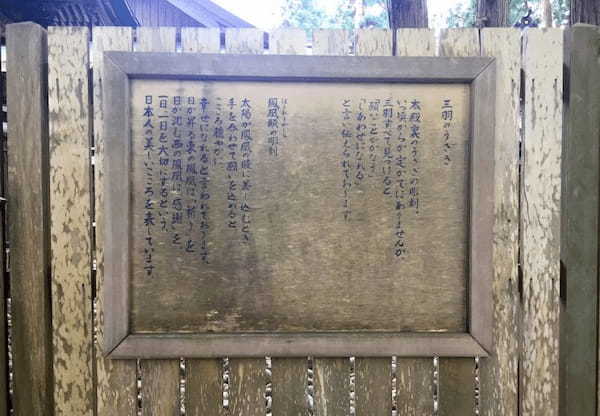 三羽のうさぎ
本殿裏のうさぎの彫刻。
いつ頃からか定かではありませんが、
三羽すべて見つけると
「願いごとがかなう」
「しあわせになれる」
と言い伝えられております。
ほうおうもん
鳳凰紋の彫刻
太陽が鳳凰の瞳に差し込むとき
手を合わせて"願"を込めると
こころ穏やかに
幸せになれると言われております。
日が昇る東の鳳凰に"祈り"を
日が沈む西の鳳凰に"感謝"を
一日一日を大切にするという、
日本人の美しいこころを表しています